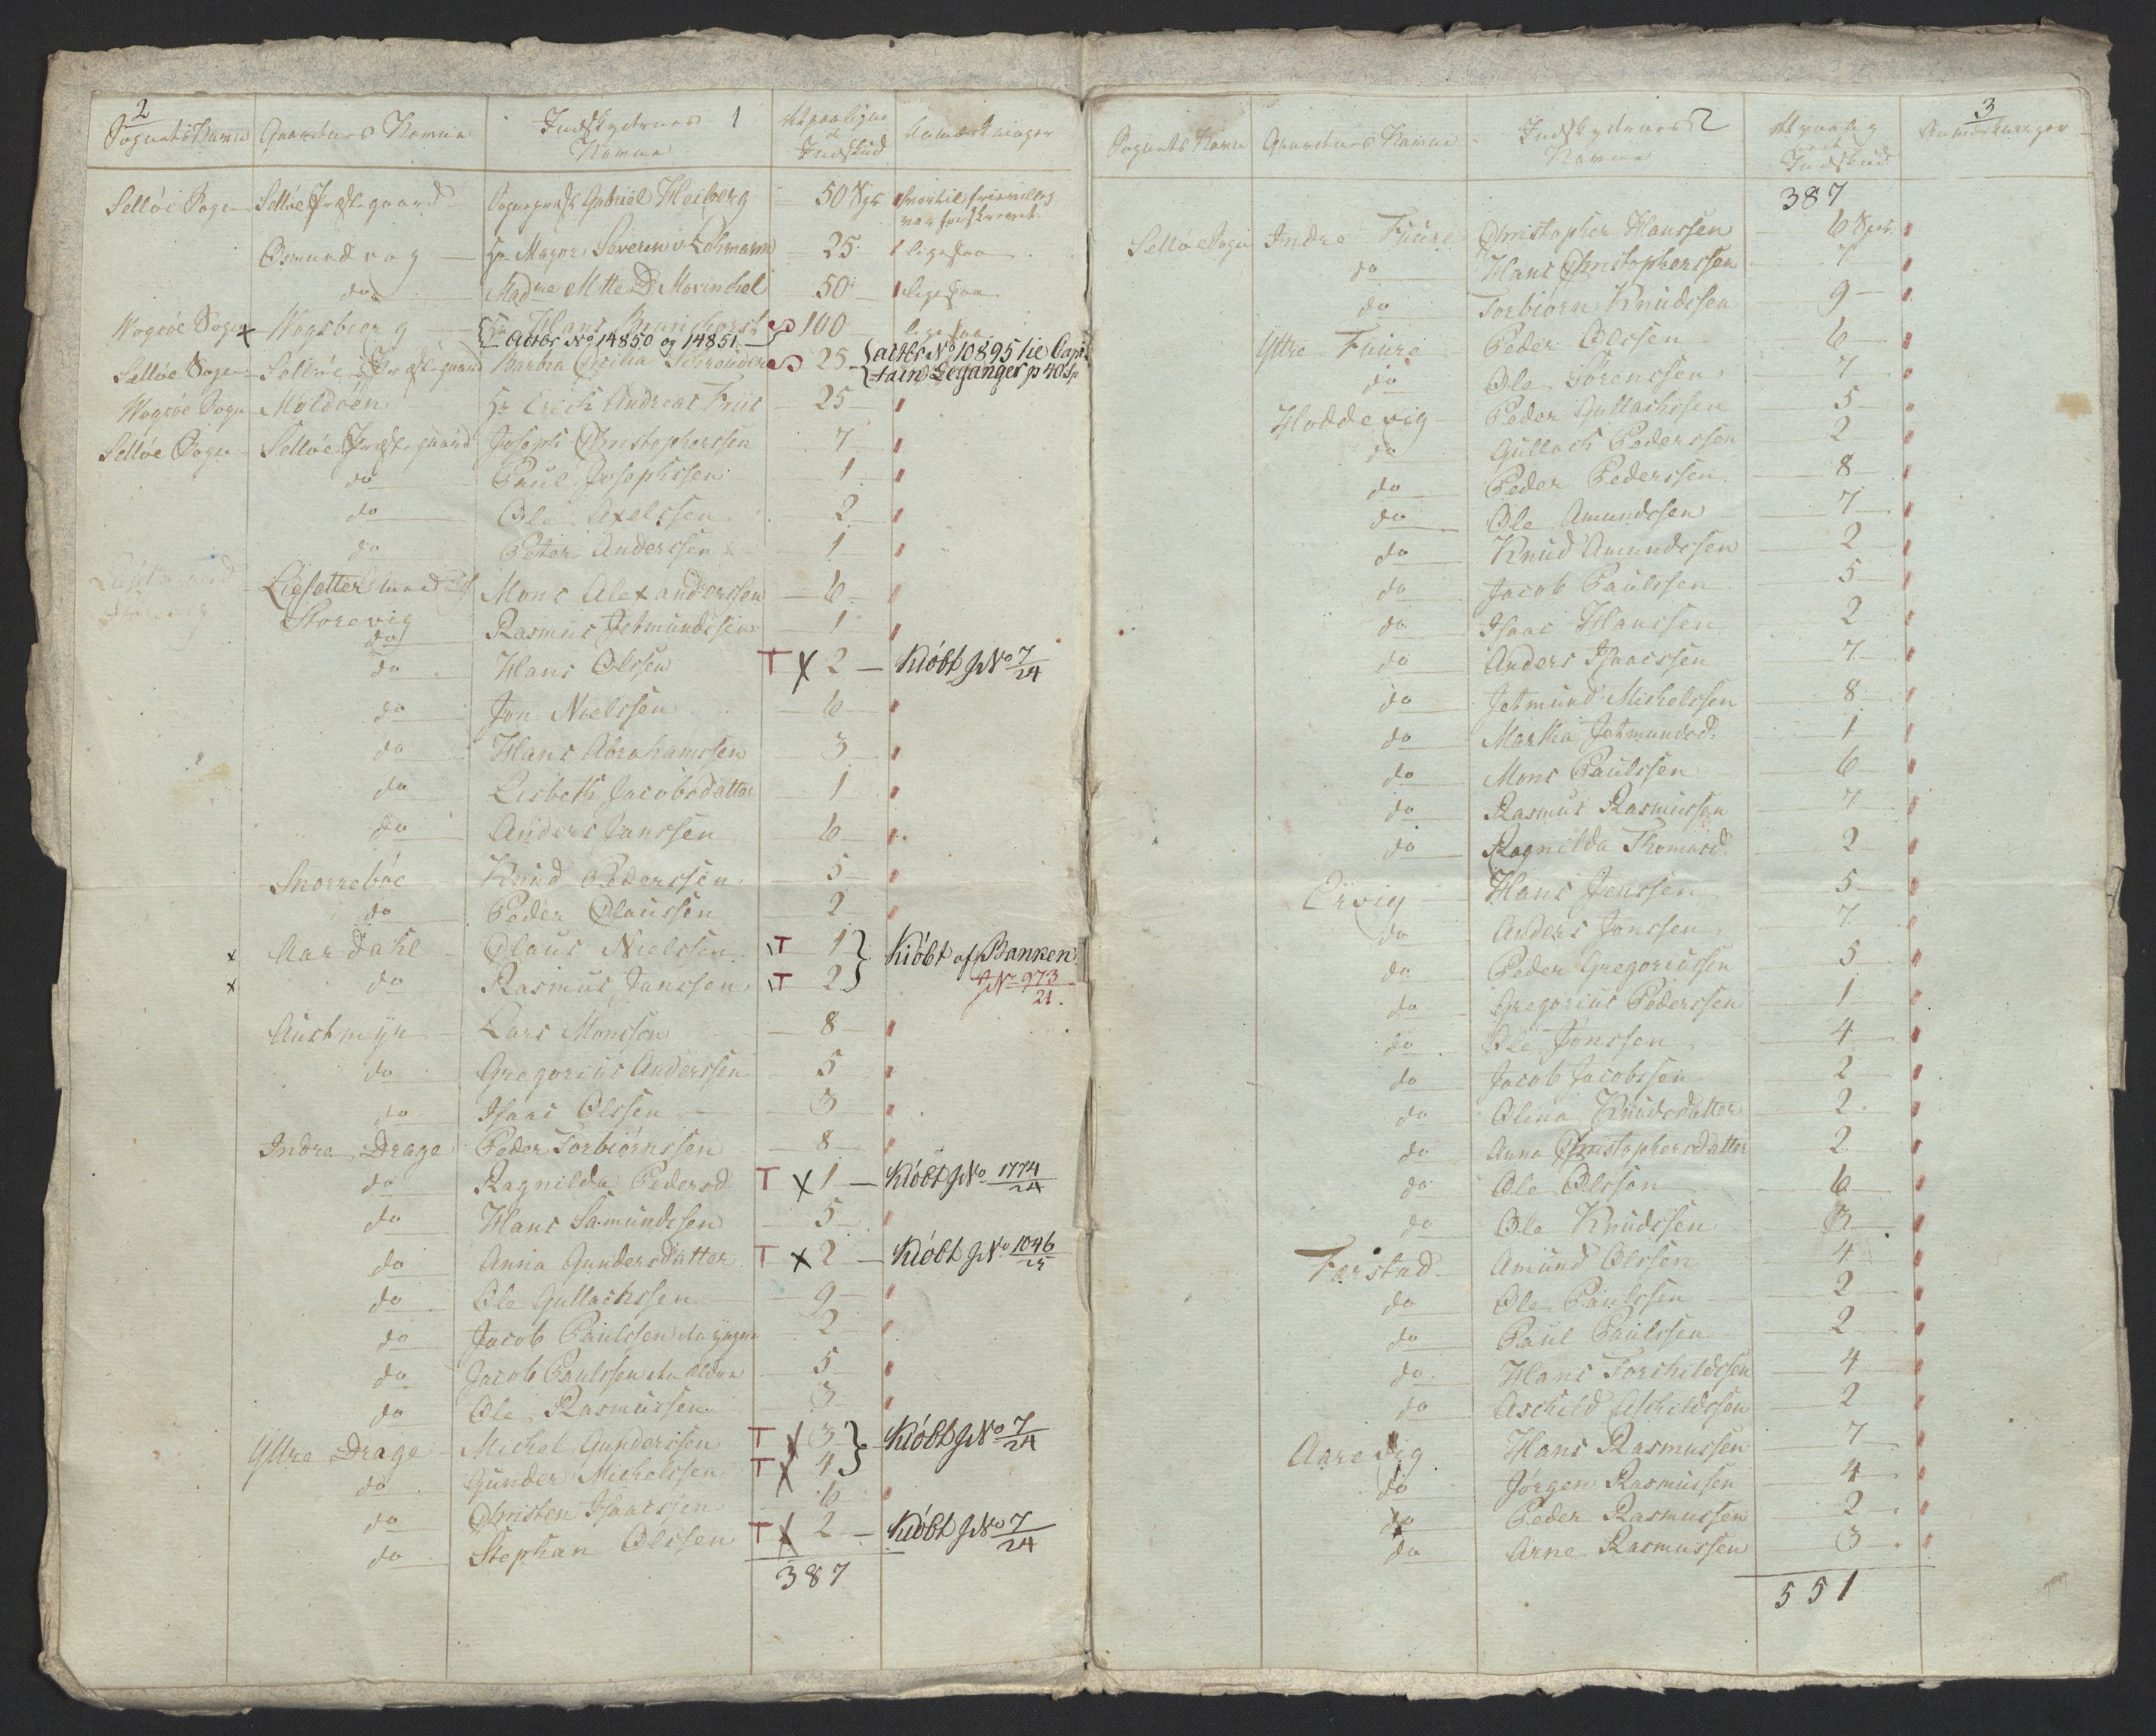 2
Sognets Navn Gaardenes Navne Indskydernes Navne 1 Indskud Anmærkninger
Selløe Sogn Selløe Præstegaard Sognepræst Gabriel Heiberg 50 Spt hvortil frieville var forskrevet
Osmundvog Hr Major Severin v Lohmann 25 ligesaa
do Madme Mette D Movinckel 50 ligesaa
Wogsøe Sogn x Wogsberg Hr Hans Brunchorst 100 ligesaa
Actbr No 14850 og 14851
Selløe Sogn Selløe Præstegaard Barbra Cecilia Schreuder 25 {actbr No 10895 tie Capi-
tain Leganger p 40 Sp
Wogsøe Sogn Moldøen Hr Erich Andreas Friis 25
Selløe Sogn Selløe Præstegaard Joseph Christophersen 7
do Paul Josephssen 1
do Ole Axelssen 2
do Peter Anderssen 1
Liesetter Mons Alexanderssen 6
Storevig
do Rasmus Jetmundssen 1
do Hans Olssen T x 2 Kiöbt JNo 7/24
do Jon Noelssen 6
do Hans Abrahamssen 3
do Lisbeth Jacobsdatter 1
do Anders Janssen 6
Snorrebøe Knud Pederssen 5
do Peder Olaussen 2
x Aardahl Olaus Nielssen T 1 } Kiöbt af Banken
x do Rasmus Janssen T 2 } JNo 973/21.
Austmyr Lars Monssen 8
do Gregorius Anderssen 5
do Isaac Olssen 3
Indre Drage Peder Torbiörnssen 8
do Ragnilda Pedersd. T x 1 Kiöbt JNo 1774/24
do Hans Samundssen 5
do Anna Gundersdatter T x 2 Kiöbt JNo 1046/25
do Ole Gullachssen 9
do Jacob Paulssen den yngre 2
do Jacob Paulssen den ældre 5
do Ole Rasmussen 3
Yttre Drage Michel Gunderssen T x 3 } Kiöbt JNo 7/24
do Gunder Michelssen T x 4 }
do Christen Isaacssen 6
do Stephan Olssen T x 2 Kiöbt JNo 7/24
387
3
Sognets Navn Gaardenes Navne Indskydernes Navne 2 Indskud Anmærkninger
387
Selløe Sogn Indre Fuure Christopher Hanssen 6 Spt.
do Hans Christopherssen 7
do Torbiörn Knudssen 9
Yttre Fuure Peder Olssen 6
do Ole Sørenssen 7
Hoddevig Peder Gullachssen 5
do Gullach Pederssen 2
do Peder Pederssen 8
do Ole Amundssen 7
do Knud Amundssen 2
do Jacob Paulssen 5
do Isaac Hanssen 2
do Anders Isaacssen 7
do Jetmund Michelssen 8
do Martha Jetmundsd. 1
do Mons Paulssen 6
do Rasmus Rasmussen 7
do Ragnilda Thomasd. 2
Ervig Hans Jenssen 5
do Anders Janssen 7
do Peder Gregoriussen 5
do Gregorius Pederssen 1
do Ole Jonssen 4
do Jacob Jacobssen 2
do Olina Knudsdatter 2
do Anna Christophersdatter 2
do Ole Olssen 6
do Ole Knudssen 3
Færstad Amund Olssen 4
do Ole Paulssen 2
do Paul Paulssen 2
do Hans Torchildssen 4
do Aschild Aschildssen 2
Aarevig Hans Rasmussen 7
do Jørgen Rasmussen 4
do Peder Rasmussen 2
do Arne Rasmussen 3
551